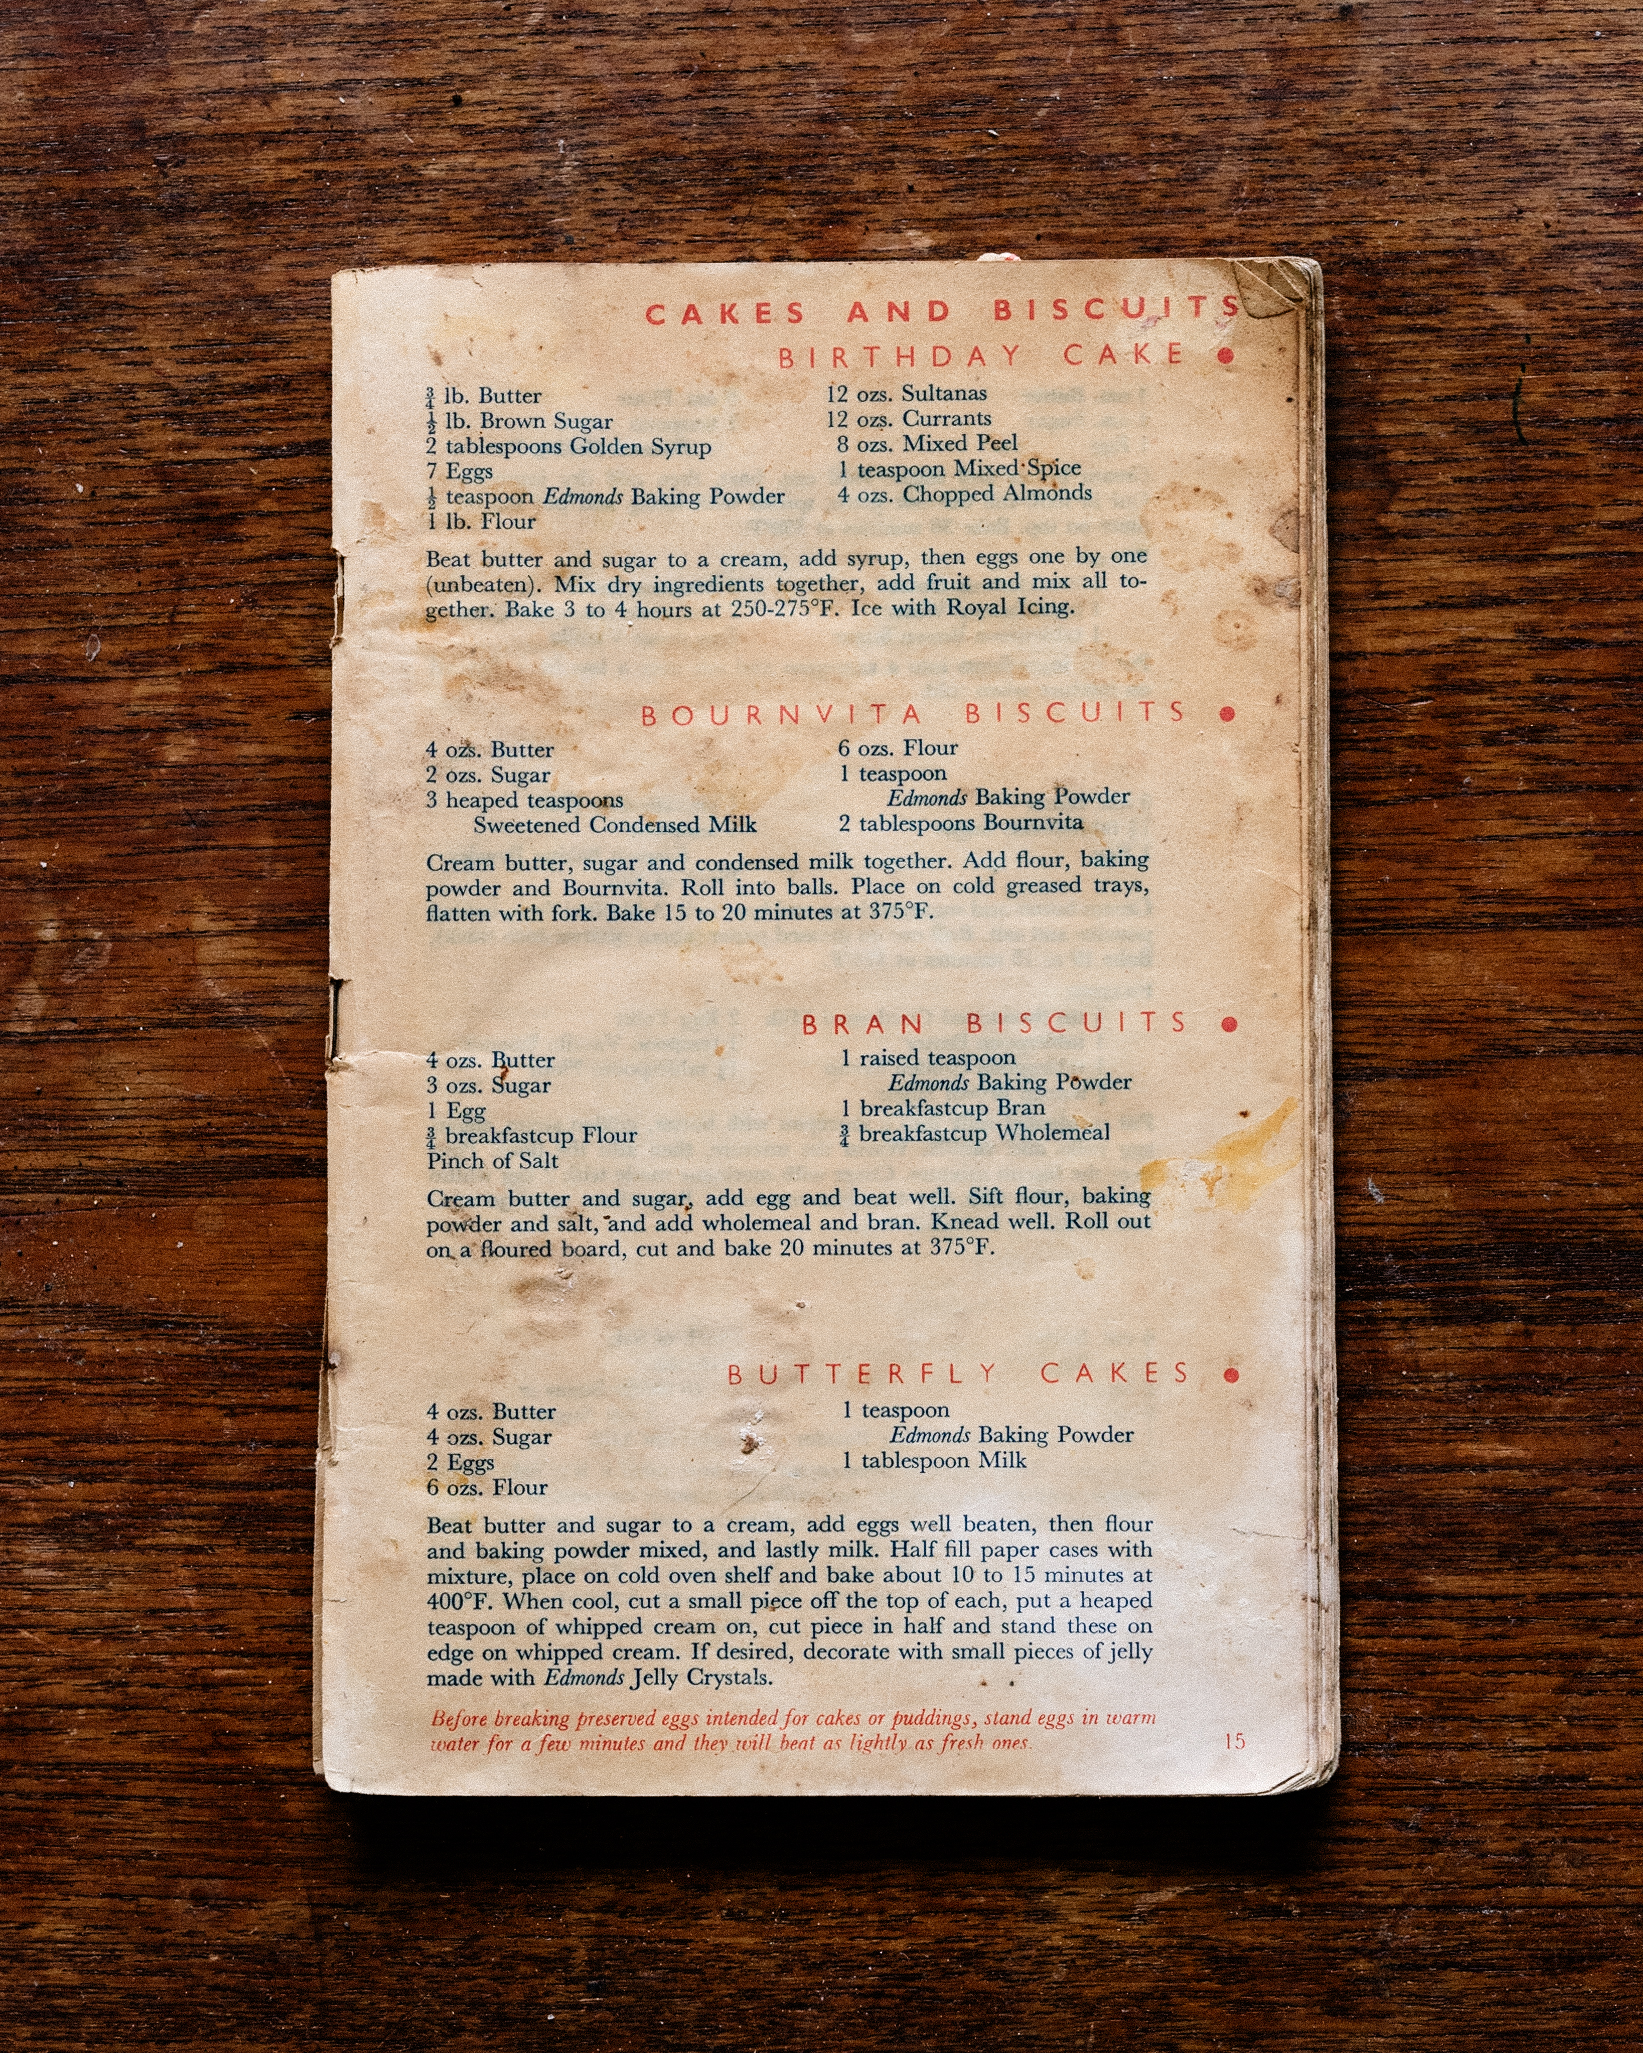 CAKES AND BISCUITS
BIRTHDAY CAKE ●
¾ lb. Butter
½ lb. Brown Sugar
2 tablespoons Golden Syrup
7 Eggs
½ teaspoon Edmonds Baking Powder
1 lb. Flour
12 ozs. Sultanas
12 ozs. Currants
8 ozs. Mixed Peel
1 teaspoon Mixed Spice
4 ozs. Chopped Almonds
Beat butter and sugar to a cream, add syrup, then eggs one by one
(unbeaten). Mix dry ingredients together, add fruit and mix all to-
gether. Bake 3 to 4 hours at 250-275°F. Ice with Royal Icing.
BOURNVITA BISCUITS ●
4 ozs. Butter
2 ozs. Sugar
3 heaped teaspoons
Sweetened Condensed Milk
6 ozs. Flour
1 teaspoon
Edmonds Baking Powder
2 tablespoons Bournvita
Cream butter, sugar and condensed milk together. Add flour, baking
powder and Bournvita. Roll into balls. Place on cold greased trays,
flatten with fork. Bake 15 to 20 minutes at 375°F.
BRAN BISCUITS ●
4 ozs. Butter
3 ozs. Sugar
1 Egg
¾ breakfastcup Flour
Pinch of Salt
1 raised teaspoon
Edmonds Baking Powder
1 breakfastcup Bran
¾ breakfastcup Wholemeal
Cream butter and sugar, add egg and beat well. Sift flour, baking
powder and salt, and add wholemeal and bran. Knead well. Roll out
on a floured board, cut and bake 20 minutes at 375°F.
BUTTERFLY CAKES ●
4 ozs. Butter
4 ozs. Sugar
2 Eggs
6 ozs. Flour
1 teaspoon
Edmonds Baking Powder
1 tablespoon Milk
Beat butter and sugar to a cream, add eggs well beaten, then flour
and baking powder mixed, and lastly milk. Half fill paper cases with
mixture, place on cold oven shelf and bake about 10 to 15 minutes at
400°F. When cool, cut a small piece off the top of each, put a heaped
teaspoon of whipped cream on, cut piece in half and stand these on
edge on whipped cream. If desired, decorate with small pieces of jelly
made with Edmonds Jelly Crystals.
Before breaking preserved eggs intended for cakes or puddings, stand eggs in warm
water for a few minutes and they will beat as lightly as fresh ones.
15